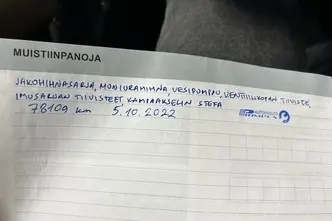 MUISTIINPANOJA
JAKOHIHNASARJA, MONIURAHIHNA, VESIPUMPPU, VENTTIILIKOPAN TIIVISTE,
IMUSARJAN TIIVISTEET, KAMPIAKSELIN STEFA
78109 km 5.10.2022